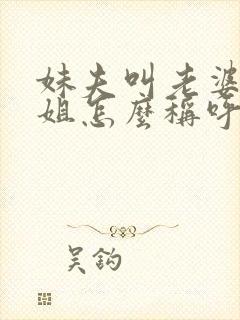 妹夫叫老婆
姐怎麼稱呼
吴鈎